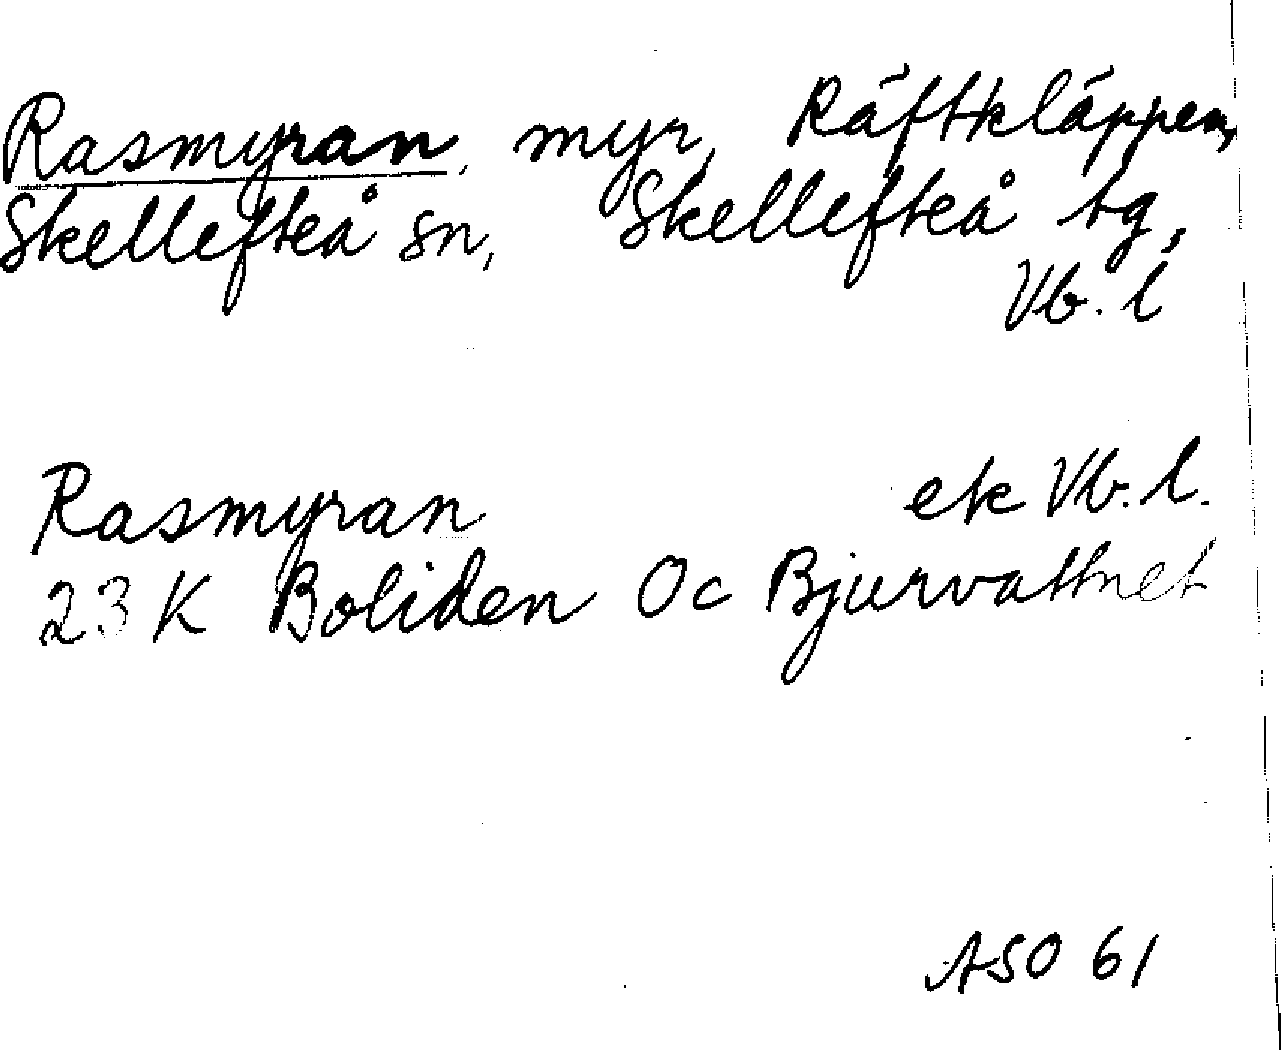 Rasmyran, myr, Räftkläppen,
Skellefteå sn, Skellefteå tg,
Vb. l
Rasmyran ek Vb. l.
23 K Boliden Oc Bjurvattnet
ASO 61